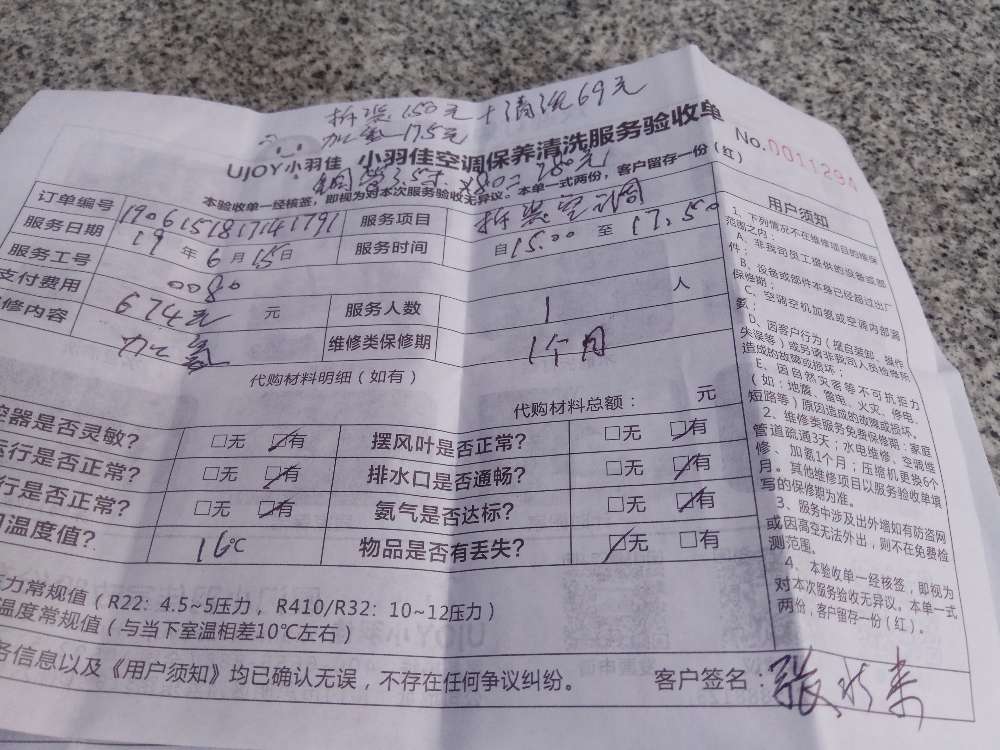 拆装150元+清洗69元
加氢175元
UJOY小羽佳 小羽佳空调保养清洗服务验收单
No.0011294
铜管3.5寸×80=280元
本验收单一经核签，即视为对本次服务验收无异议。本单一式两份，客户留存一份（红）
订单编号 1906151817141791 服务项目 拆装空调
服务日期 19年6月15日 服务时间 自15.00至17.50
服务工号 0080
支付费用 674元 元 服务人数 1 人
修内容 加氢 维修类保修期 1个月
代购材料明细（如有）
代购材料总额： 元
控器是否灵敏? □无 ☑有 摆风叶是否正常? □无 ☑有
运行是否正常? □无 ☑有 排水口是否通畅? □无 ☑有
行是否正常? □无 ☑有 氨气是否达标? □无 ☑有
温度值? 16℃ 物品是否有丢失? ☑无 □有
力常规值（R22：4.5~5压力，R410/R32：10~12压力）
温度常规值（与当下室温相差10℃左右）
务信息以及《用户须知》均已确认无误，不存在任何争议纠纷。
客户签名：张水来
用户须知
1、下列情况不在维修项目的维保
范围之内：
A、非我司员工提供的设备或部
件；
B、设备或部件本身已经超过出厂
保修期；
C、空调空机加氨或空调内部漏
氨；
D、因客户行为（擅自装卸、操作
失误等）或另请非我司人员检修所
造成的故障或损坏；
E、因自然灾害等不可抗拒力
（如：地震、雷电、火灾、修电、
短路等）原因造成的故障或损坏。
2、维修类服务免费保修期：家庭
管道疏通3天；水电维修、空调维
修、加氨1个月；压缩机更换6个
月。其他维修项目以服务验收单填
写的保修期为准。
3、服务中涉及出外墙如有防盗网
或因高空无法外出，则不在免费检
测范围。
4、本验收单一经核签，即视为
对本次服务验收无异议。本单一式
两份，客户留存一份（红）。